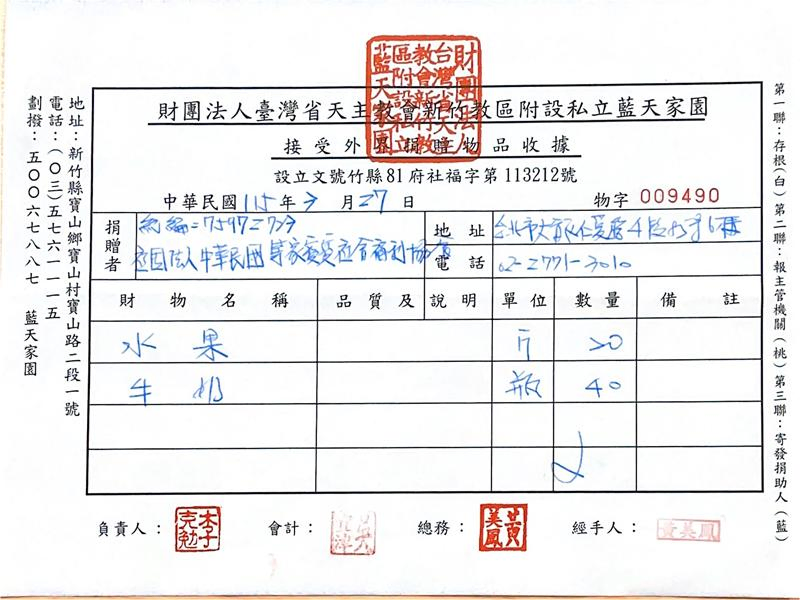 財團法人台灣省天主教會新竹教區附設私立藍天家園
財團法人臺灣省天主教會新竹教區附設私立藍天家園
接受外界捐贈物品收據
設立文號竹縣81府社福字第113212號
中華民國115年 月27日
物字 009490
捐贈者
統編:
社團法人中華民國 社會福利協會
地址
台北市大安區仁愛路4段 6樓
電話
02-2771-3010
財物名稱 品質及說明 單位 數量 備註
水果 斤 20
牛奶 瓶 40
負責人: 李克勉
會計:
總務: 黃美鳳
經手人: 黃美鳳
地址:新竹縣寶山鄉寶山村寶山路二段一號
電話:(03)5761115
劃撥:50067887 藍天家園
第一聯:存根(白)第二聯:報主管機關(桃)第三聯:寄發捐助人(藍)